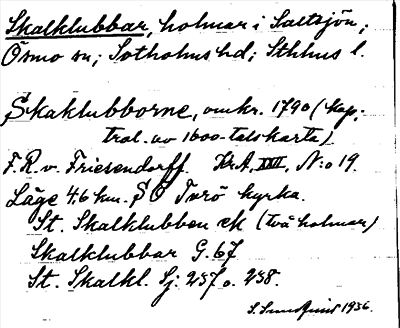 Skalklubbar, holmar i Saltsjön;
Ösmo sn; Sotholms hd; Sthlms l.
Skaklubborne, omkr. 1790 (kop;
tral. av 1600-talskarta)
F.R. v. Friesendorff. Kr.A. XVII, N:o 19.
Läge 4.6 km. SO Torö kyrka.
St. Skalklubben EK (två holmar)
Skalklubbar G. 67
St. Skalkl. Sj: 257 o. 258.
1936.